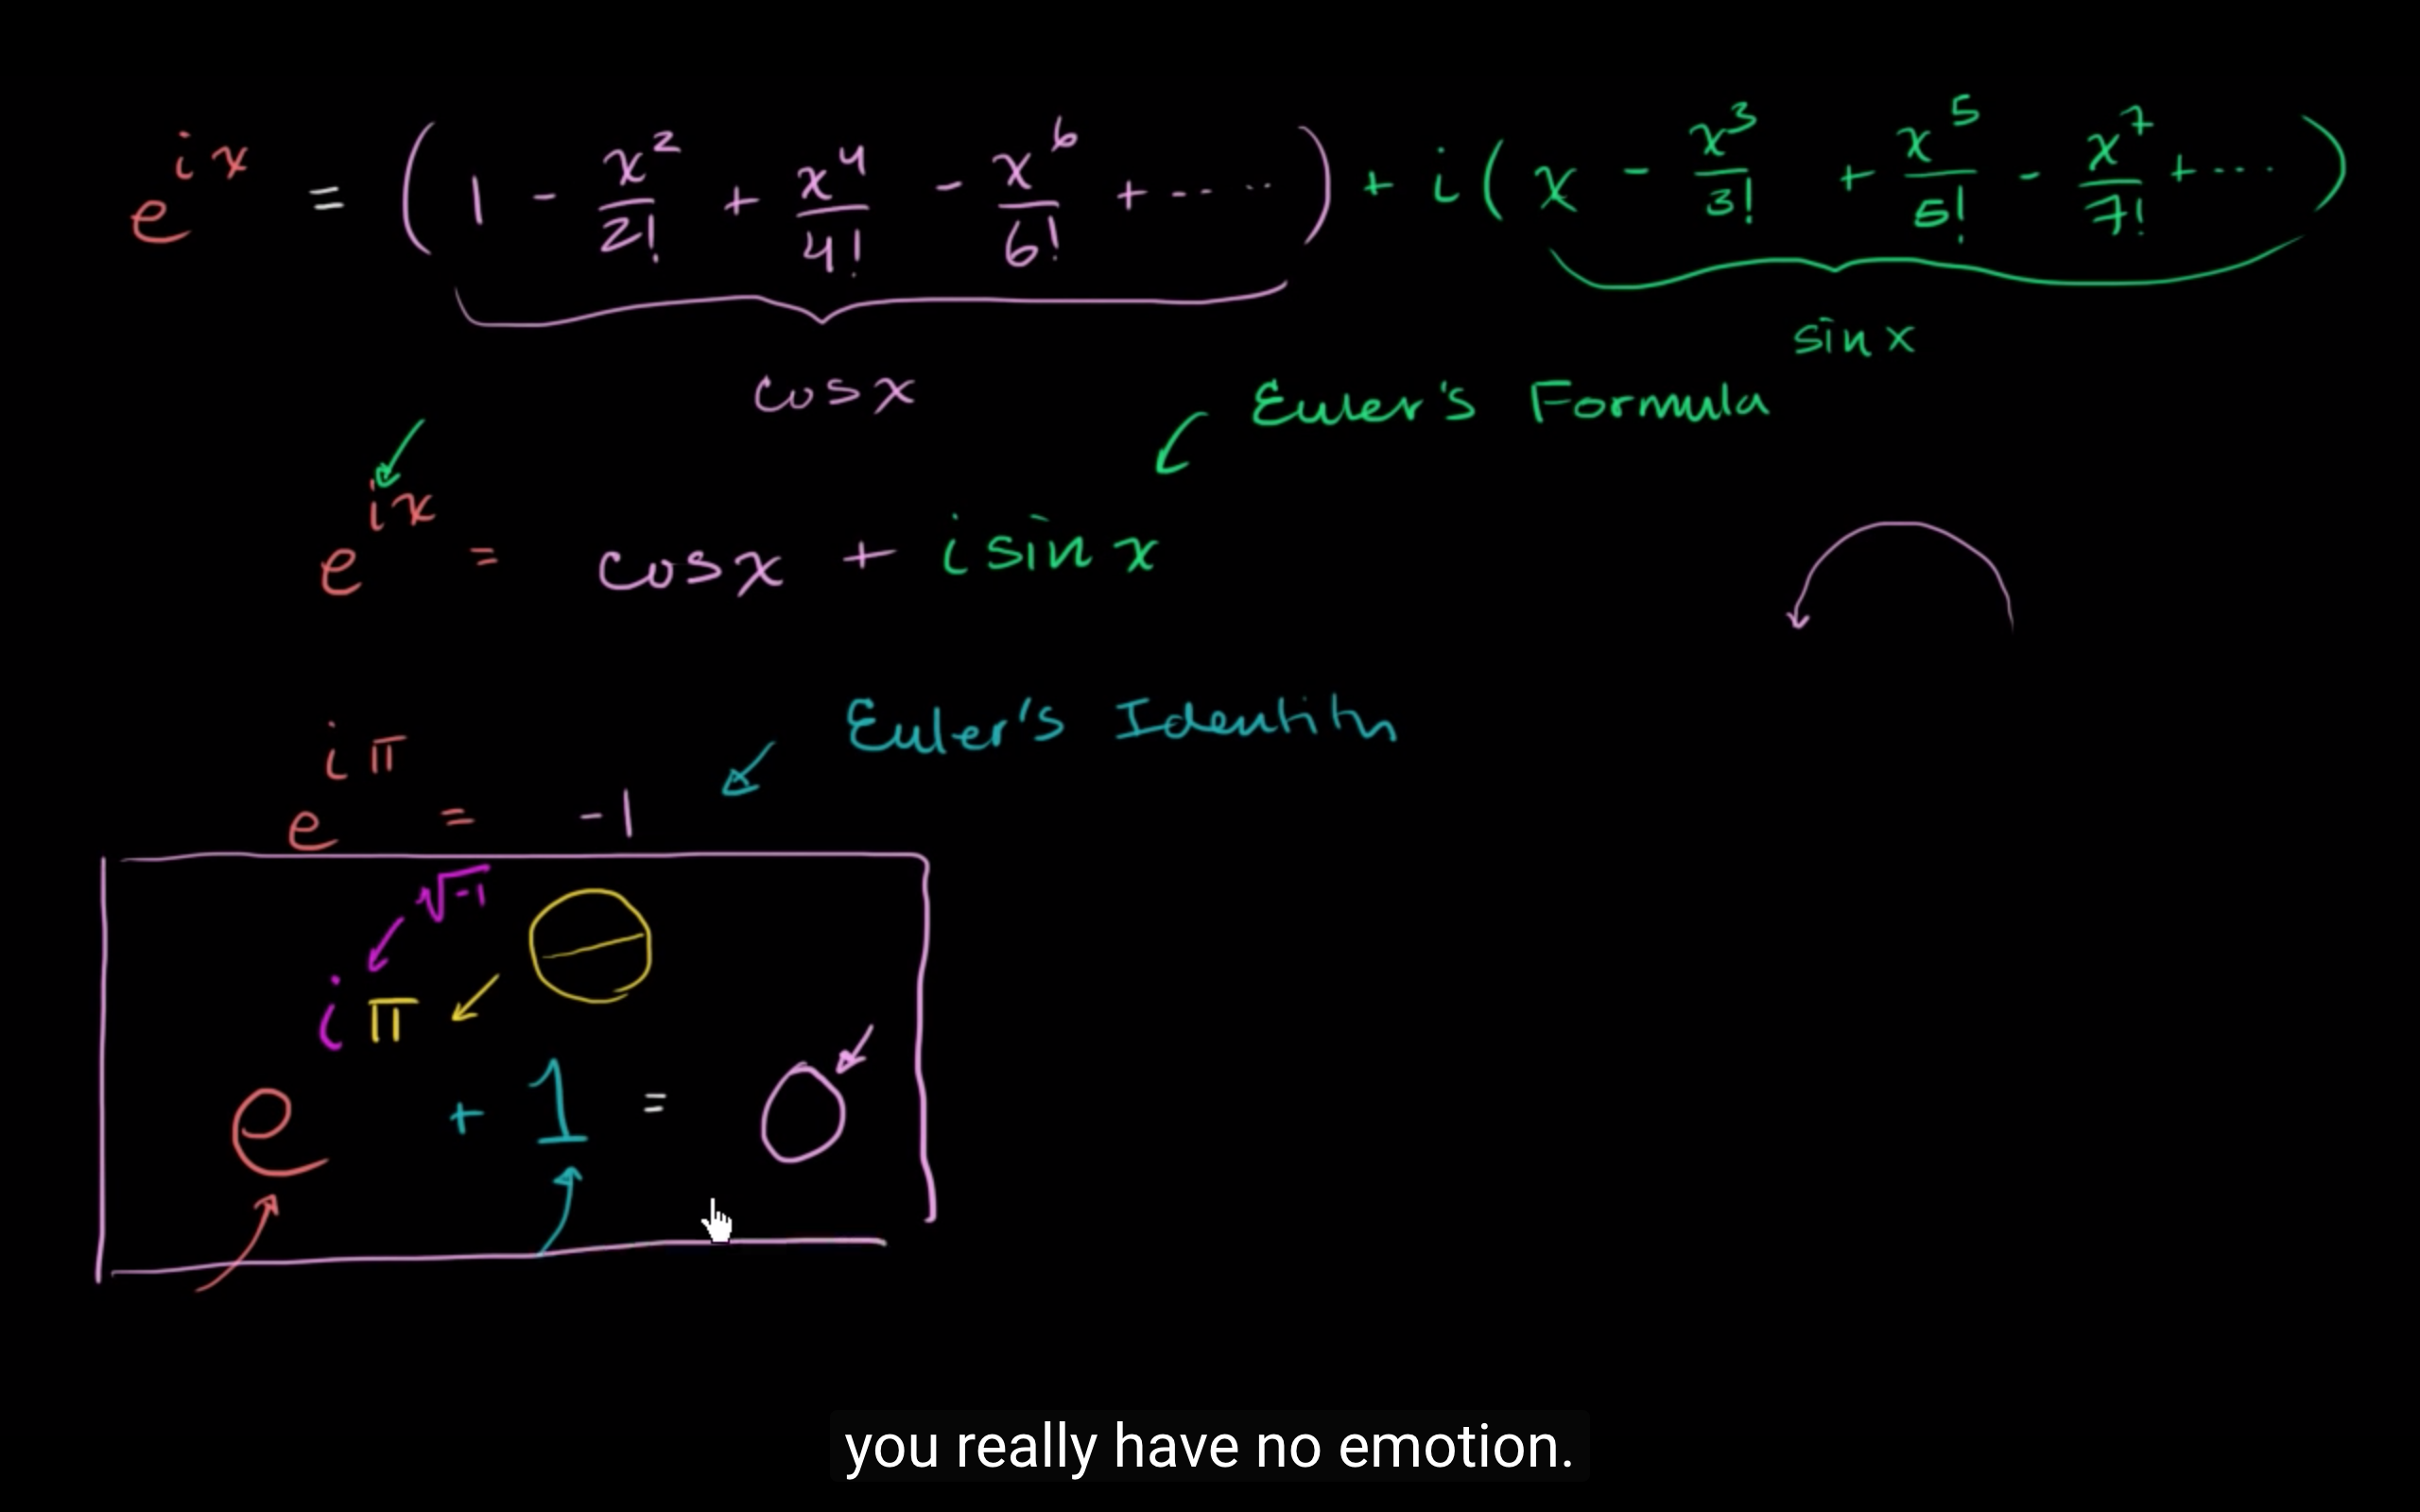 e^{ix} = (1 - x²/2! + x⁴/4! - x⁶/6! + ....) + i(x - x³/3! + x⁵/5! - x⁷/7! + ....)
sin x
cos x
Euler's Formula
e^{ix} = cos x + i sin x
Euler's Identity
e^{iπ} = -1
√-1
e^{iπ} + 1 = 0
you really have no emotion.